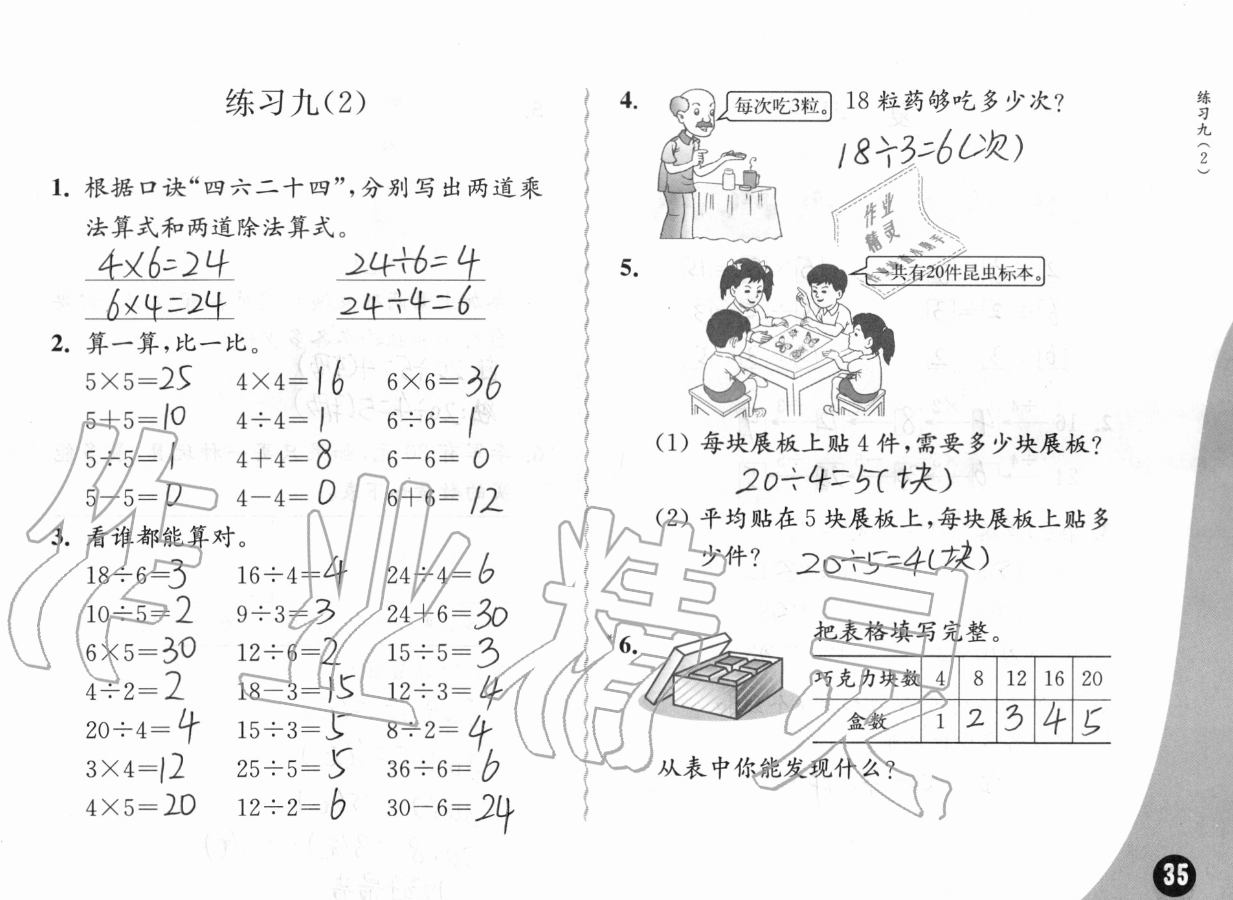 练习九(2)
1. 根据口诀“四六二十四”,分别写出两道乘
法算式和两道除法算式。
4×6=24 24÷6=4
6×4=24 24÷4=6
2. 算一算,比一比。
5×5=25 4×4=16 6×6=36
5+5=10 4÷4=1 6÷6=1
5÷5=1 4+4=8 6-6=0
5-5=0 4-4=0 6+6=12
3. 看谁都能算对。
18÷6=3 16÷4=4 24÷4=6
10÷5=2 9÷3=3 24+6=30
6×5=30 12÷6=2 15÷5=3
4÷2=2 18-3=15 12÷3=4
20÷4=4 15÷3=5 8÷2=4
3×4=12 25÷5=5 36÷6=6
4×5=20 12÷2=6 30-6=24
4. 每次吃3粒。 18粒药够吃多少次?
18÷3=6(次)
作业
精灵
5. 共有20件昆虫标本。
(1) 每块展板上贴4件,需要多少块展板?
20÷4=5(块)
(2) 平均贴在5块展板上,每块展板上贴多
少件? 20÷5=4(块)
6. 把表格填写完整。
巧克力块数 4 8 12 16 20
盒数 1 2 3 4 5
从表中你能发现什么?
作业精灵
练习九(2)
35